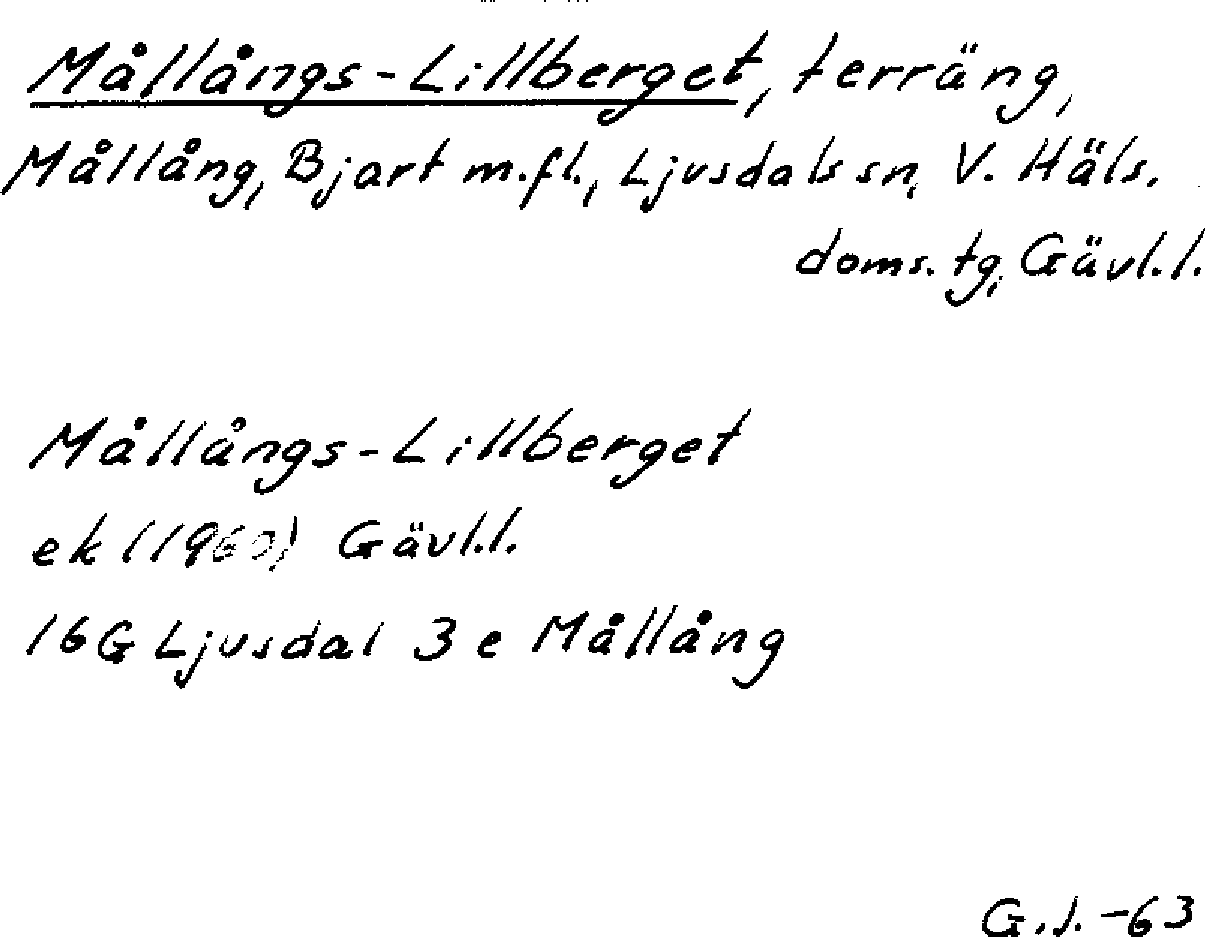 Mållångs-Lillberget, terräng,
Mållång, Bjart m.fl., Ljusdals sn, V. Häls.
doms. tg, Gävl.l.
Mållångs-Lillberget
ek (1960) Gävl.l.
16G Ljusdal 3 e Mållång
G.J. -63